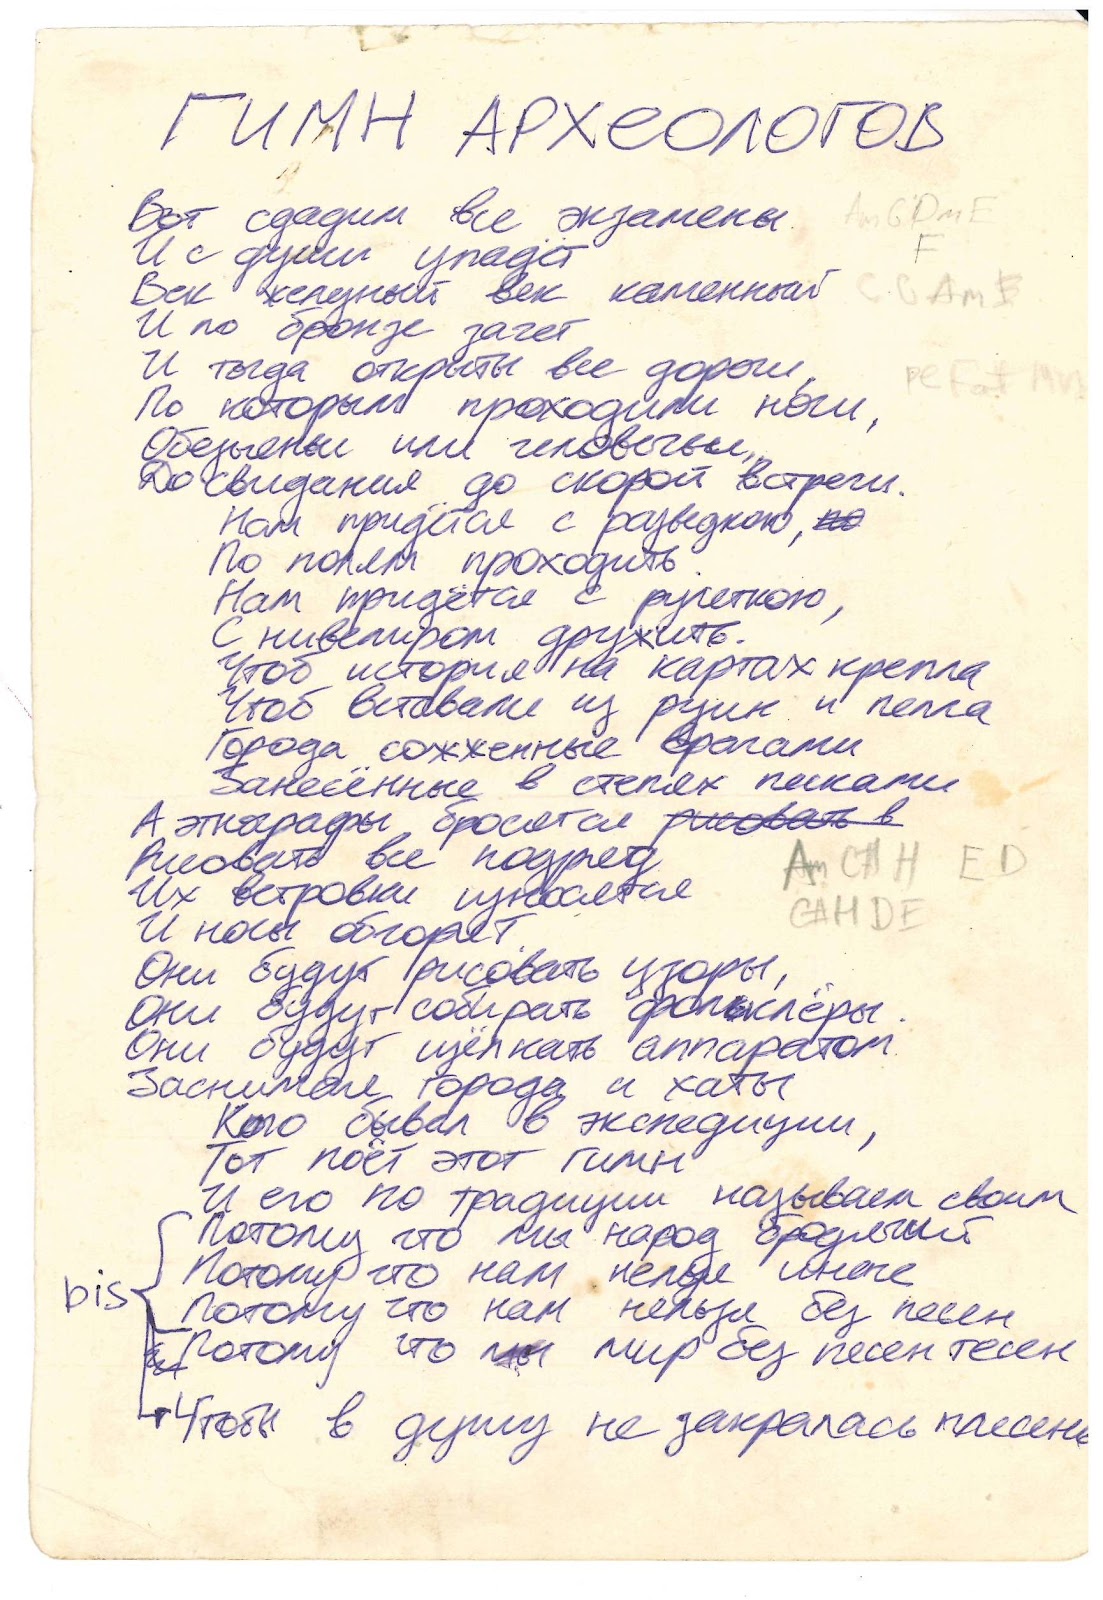 ГИМН АРХЕОЛОГОВ
Вот сдадим все экзамены
И с души упадёт
Век железный век каменный
И по бронзе зачет
И тогда открыты все дороги,
По которым проходили ноги,
Обезьяньи или человечьи,
До свидания до скорой встречи.
Нам придётся с разведкою, по
По полям проходить.
Нам придётся с рулеткою,
С нивелиром дружить.
Чтоб история на картах крепла
Чтоб вставали из руин и пепла
Города сожженные врагами
Занесённые в степях песками
А этнографы бросятся рисовать в
Рисовать все подряд
Их ветровки износятся
И носы обгорят
Они будут рисовать узоры,
Они будут собирать фольклёры.
Они будут щёлкать аппаратом
Заснимая города и хаты
Кто бывал в экспедиции,
Тот поёт этот гимн
И его по традиции называем своим
Потому что мы народ бродячий
Потому что нам нельзя иначе
bis Потому что нам нельзя без песен
Потому что мы мир без песен тесен
Чтобы в душу не закралась плесень
Am G Dm E
F
C G Am E
Am C# H E D
G# H D E